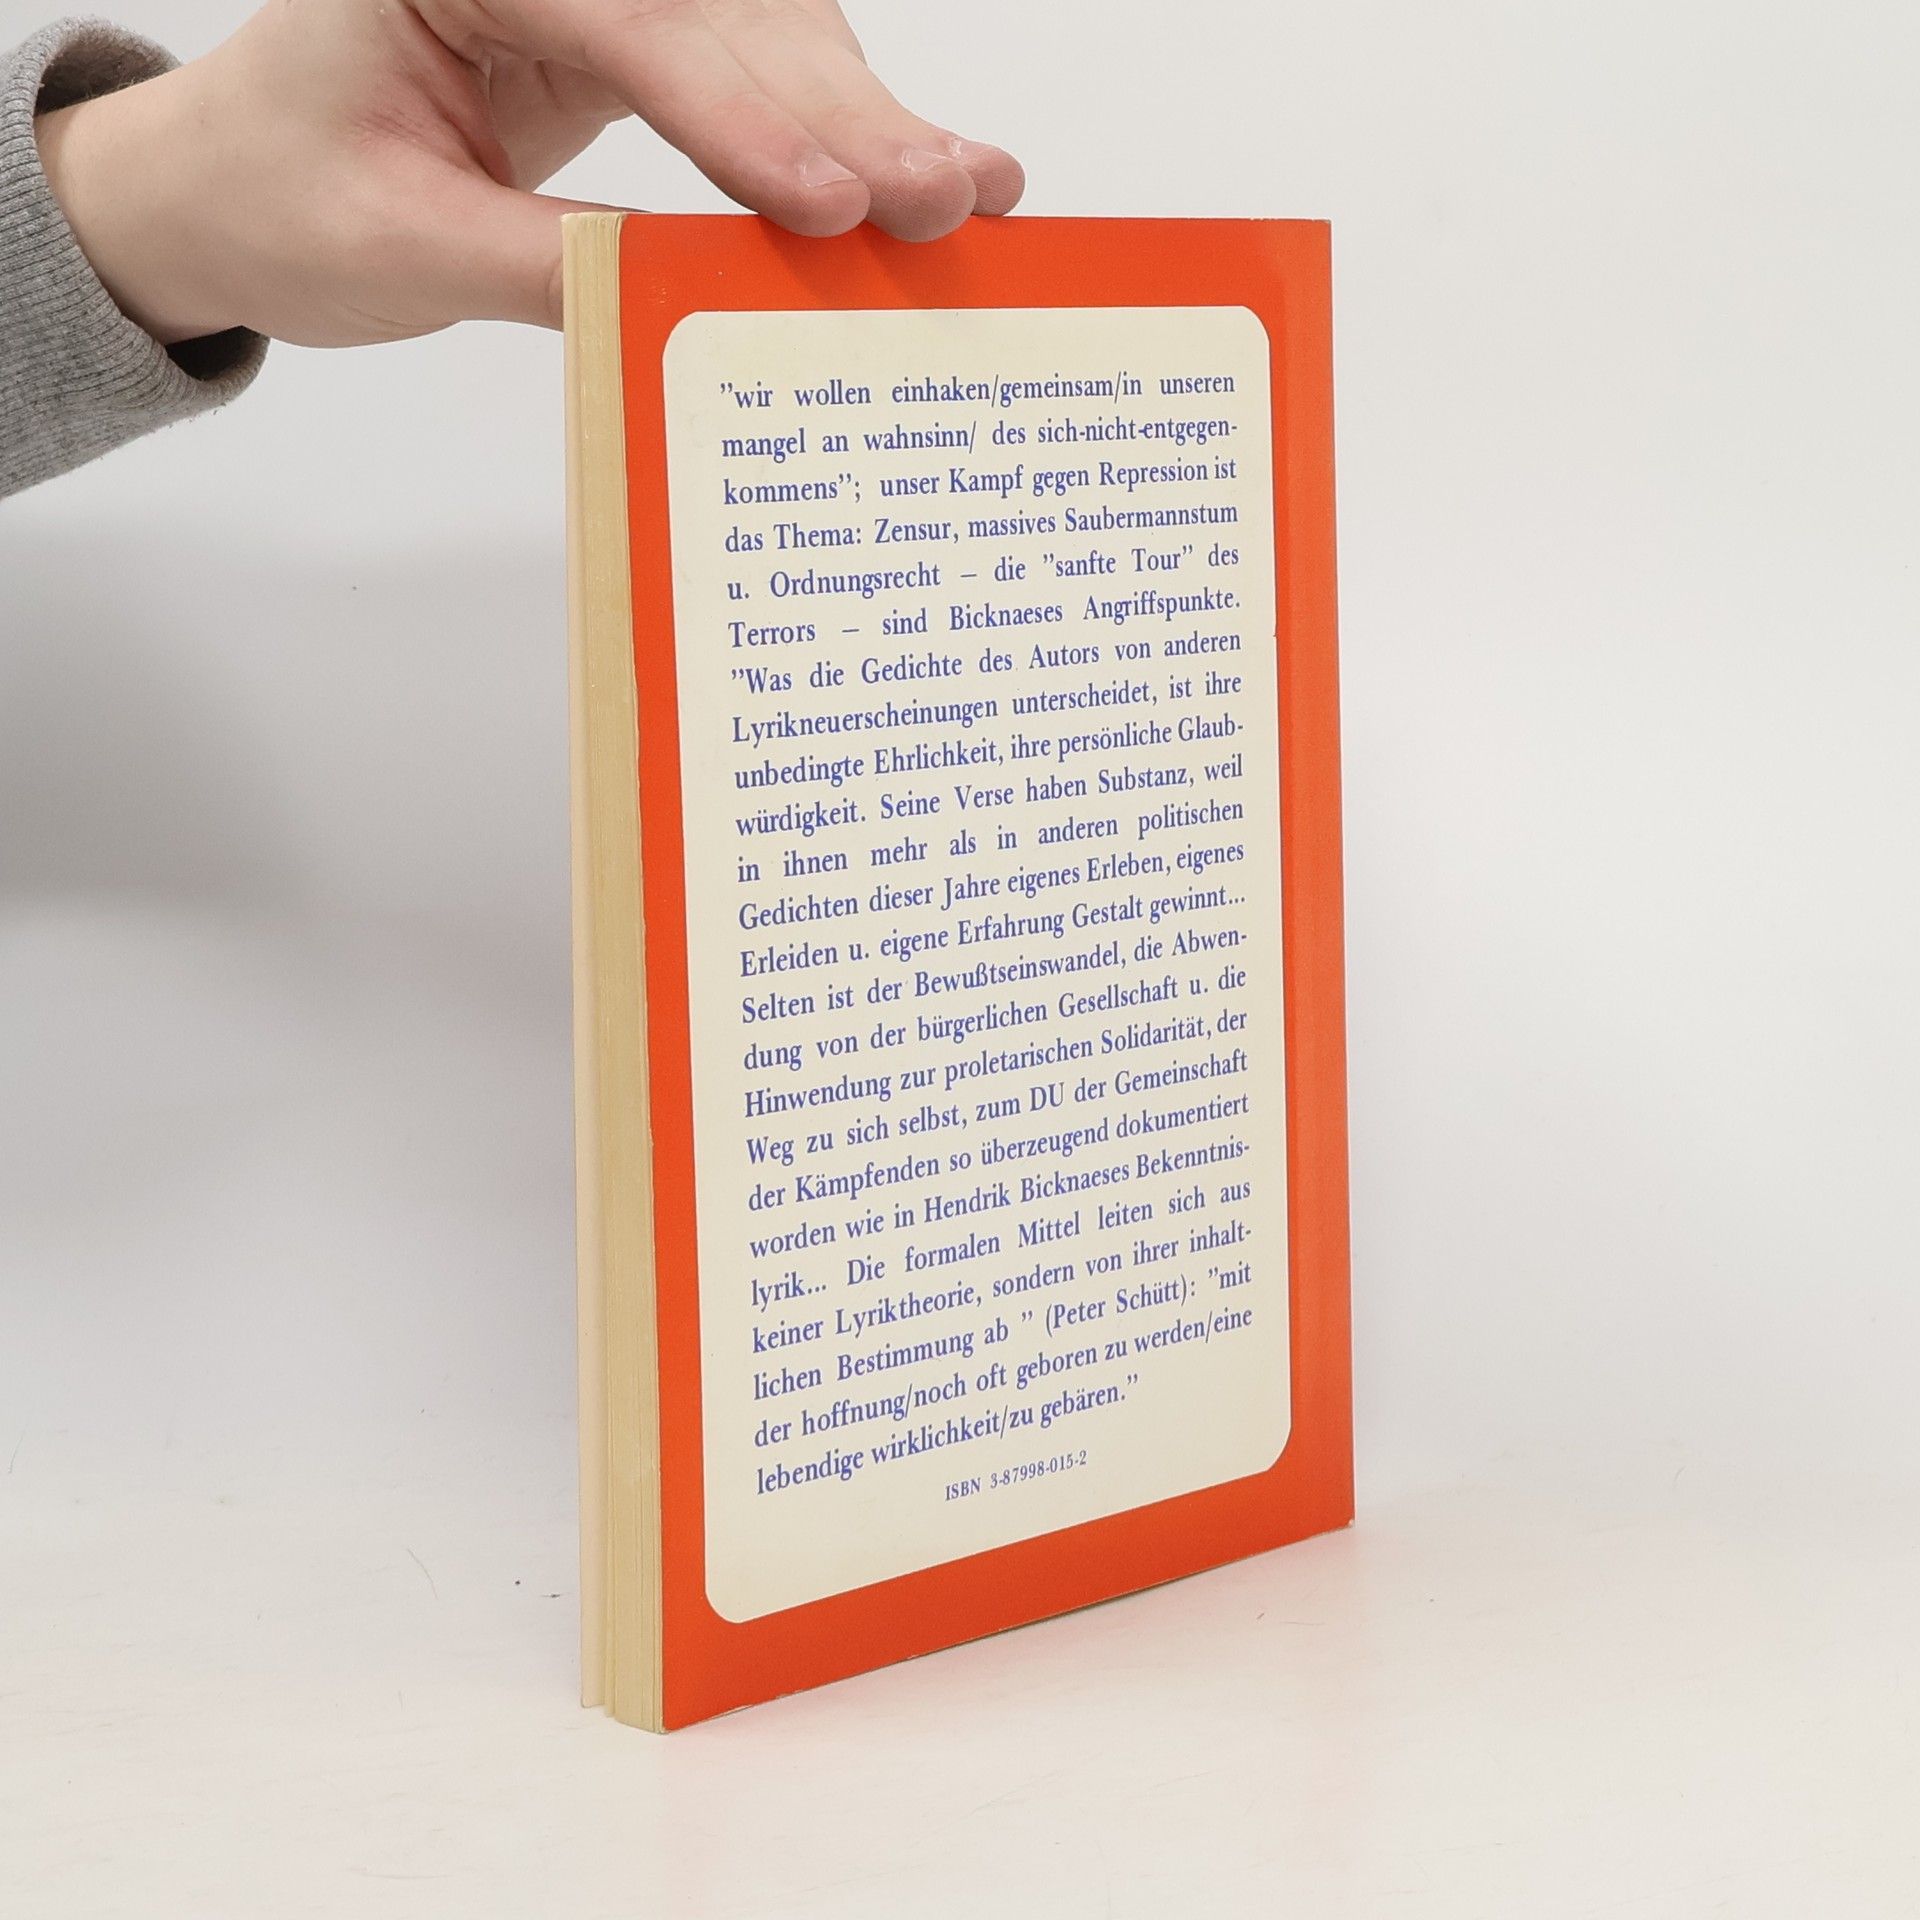 ”wir wollen einhaken/gemeinsam/in unseren
mangel an wahnsinn/ des sich-nicht-entgegen-
kommens”; unser Kampf gegen Repression ist
das Thema: Zensur, massives Saubermannstum
u. Ordnungsrecht – die ”sanfte Tour” des
Terrors – sind Bicknaeses Angriffspunkte.
”Was die Gedichte des Autors von anderen
Lyrikneuerscheinungen unterscheidet, ist ihre
unbedingte Ehrlichkeit, ihre persönliche Glaub-
würdigkeit. Seine Verse haben Substanz, weil
in ihnen mehr als in anderen politischen
Gedichten dieser Jahre eigenes Erleben, eigenes
Erleiden u. eigene Erfahrung Gestalt gewinnt...
Selten ist der Bewußtseinswandel, die Abwen-
dung von der bürgerlichen Gesellschaft u. die
Hinwendung zur proletarischen Solidarität, der
Weg zu sich selbst, zum DU der Gemeinschaft
der Kämpfenden so überzeugend dokumentiert
worden wie in Hendrik Bicknaeses Bekenntnis-
lyrik... Die formalen Mittel leiten sich aus
keiner Lyriktheorie, sondern von ihrer inhalt-
lichen Bestimmung ab ” (Peter Schütt): ”mit
der hoffnung/noch oft geboren zu werden/eine
lebendige wirklichkeit/zu gebären.”
ISBN 3-87998-015-2